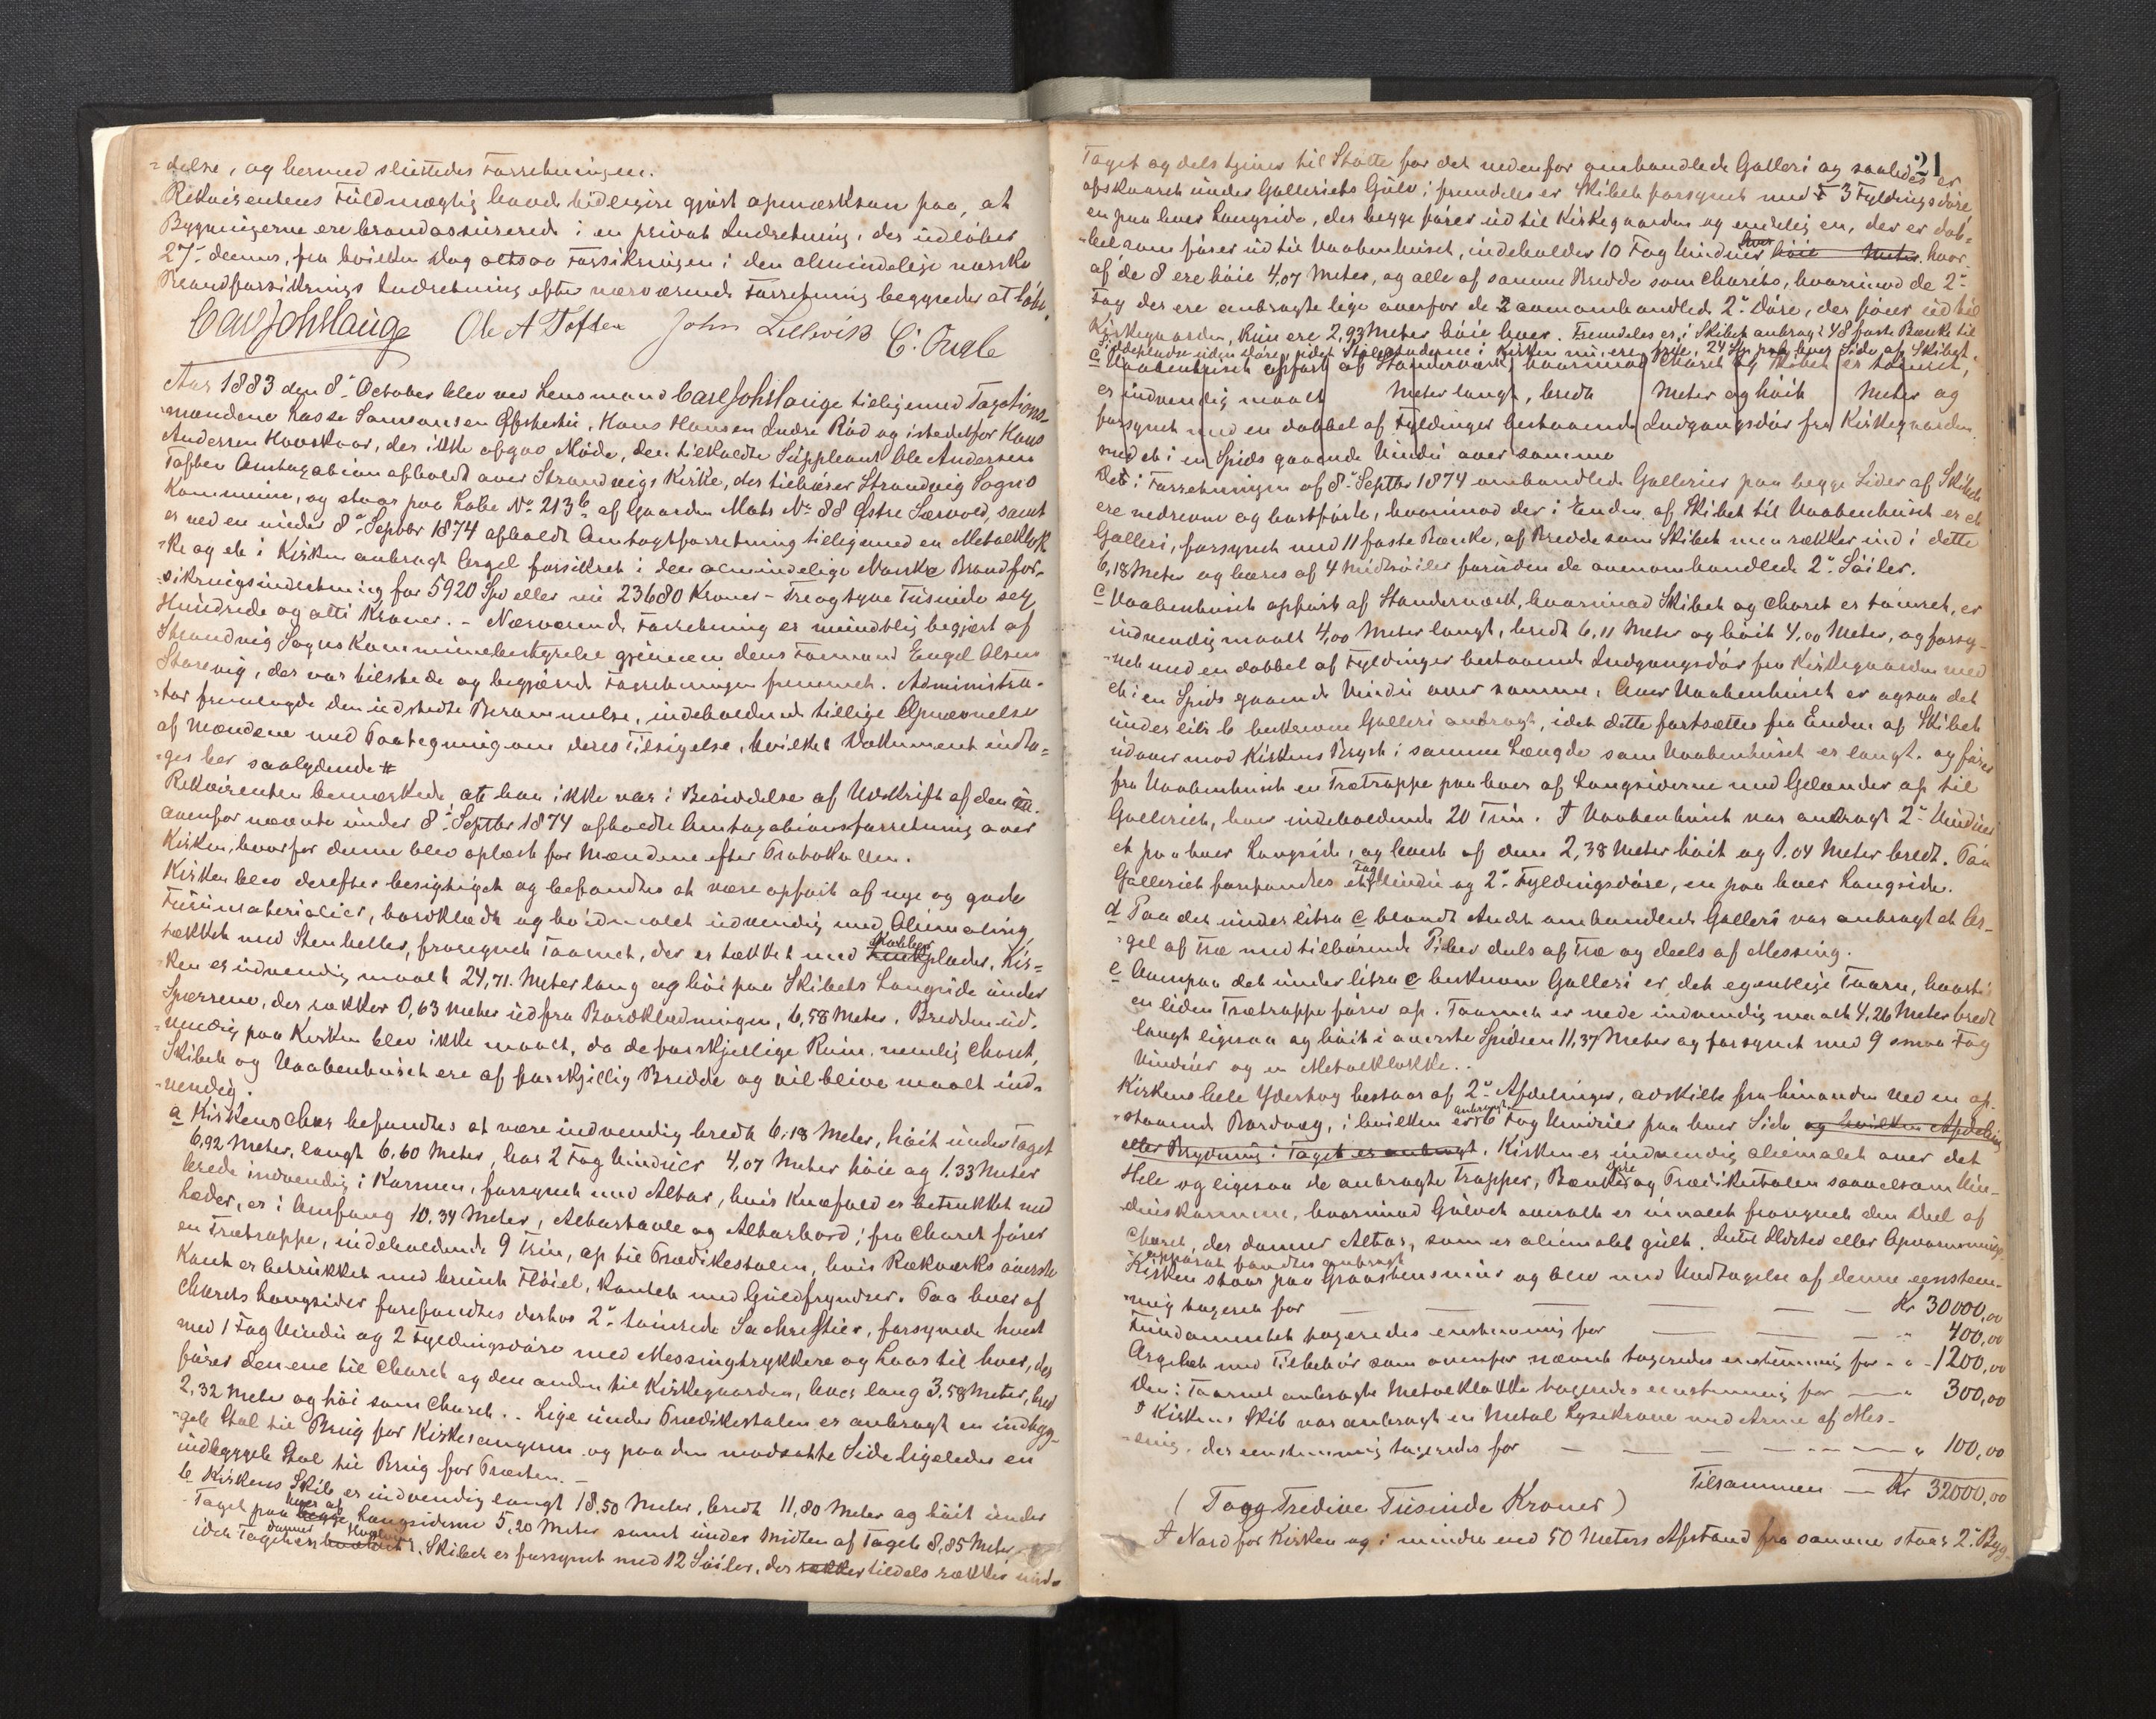 =delse, og hermed sluttedes Forretningen.
Rekvirentens Fuldmægtig havde tidligere gjort opmærksom paa, at
Bygningerne ere brandassurerede i en privat Indretning, der udløber
27de dennes, fra hvilken Dag altsaa Forsikringen i den almindelige norske
Brandforsikrings Indretning efter nærværende Forretning begynder at løbe.
Carl Joh Hauge Ole A Toften John
Aar 1883 den 8de October blev ved Lensmand Carl Joh Hauge tilligemed Taxations-
mændene Lasse Samsonsen Hans Hansen Indre Rød og istedetfor Hans
Andersen Hovskaar, der ikke afgav Møde, den tilkaldte Suppleant Ole Andersen
Toften Omtaxation afholdt over Strandvigs Kirke, der tilhører Strandvig Sogns
Kommune, og staar paa Løbe No 213b af Gaarden Matr No 88 Østre Særvold, samt
er ved en under 8de Septbr 1874 afholdt Omtaxtforretning tilligemed en Metalklok
-ke og et i Kirken anbragt Orgel forsikret i den almindelige Norske Brandfor-
sikringsindretning for 5920 Spd eller nu 23680 Kroner - Tre og tyve Tusinde sex
Hundrede og otti Kroner. - Nærværende Forretning er mundtlig begjært af
Strandvig Sogns Kommunebestyrelse gjennem dens Formand Engel Olsen
Storevig, der var tilstede og begjærede Forretningen fremmet. Administra-
-tor fremlagde den udstedte Berammelse, indeholdende tillige Opnævnelse
af Mændene med Paategning om deres Tilsigelse, hvilket Dokument indta-
-ges her saalydende #
Rekvirenten bemærkede at han ikke var i Besiddelse af Udskrift af den
ovenfor nævnte under 8de Septbr 1874 afholdte Omtaxationsforretning over
Kirken, hvorfor denne blev oplæst for Mændene efter Protokollen.
Kirken blev derefter besigtiget og befandtes at være opført af nye og gode
Furumaterialier, bordklædt og hvidmalet udvendig med Oliemaling,
tækket med Stenheller, fraregnet Taarnet, der er tækket med plader. Kir-
ken er udvendig maalt 24,71. Meter lang og høi paa Skibets Langside under
Spærrene, der rækker 0,63 Meter ud fra Bordklædningen, 6,58 Meter. Bredden ud-
vendig paa Kirken blev ikke maalt, da de forskjellige Rum, nemlig Choret,
Skibet og Vaabenhuset ere af forskjellig Bredde og vil blive maalt ind-
vendig.
a Kirkens Chor befandtes at være indvendig bredt 6,18 Meter, høit under Taget
6,92 Meter, langt 6,60 Meter, har 2 Fag Vinduer 4,07 Meter høie og 1,33 Meter
brede indvendig i Karmen, forsynet med Altar, hvis Knæfald er betrukket med
Læder, er i Omfang 10,34 Meter, Altartavle og Altarbord; fra Choret fører
en Trætrappe, indeholdende 9 Trin, op til Prædikestolen, hvis Rækværks øverste
Kant er betrukket med brunt Fløiel, kantet med Guldfryndser. Paa hver af
Chorets Langsider forefandtes derhos 2de tømrede Sachristier, forsynede hvert
med 1 Fag Vindu og 2 Fyldingsdøre med Messingtrykkere og Laas til hver, der
fører den ene til Choret og den anden til Kirkegaarden, hver lang 3,58 Meter, bred
2,32 Meter og høi som Choret. . Lige under Prædikestolen er anbragt en indbyg-
get Stol til Brug for Kirkesangeren og paa den modsatte Side ligeledes en
indbygget Stol til Brug for Præsten. -
b Kirkens Skib er indvendig langt 18,50 Meter, bredt 11,80 Meter og høit under
Taget paa hver af Langsiderne 5,20 Meter samt under Midten af Taget 8,85 Meter,
idet Taget danner Hvælving. Skibet er forsynet med 12 Søiler, der rækker tildels rækker ind-
21
Taget og dels tjener til Støtte for det nedenfor omhandlede Galleri og saaledes er
afskaaret under Galleriets Gulv; fremdeles er Skibet forsynet med 3 Fyldingsdøre
en paa hver Langside, der begge fører ud til Kirkegaarden og endelig en, der er dob-
bel som fører ud til Vaabenhuset, indeholder 10 Fag Vinduer hver høie Meter. hvor-
af de 8 ere høie 4,07 Meter, og alle af samme Bredde som Chorets, hvorimod de 2de
Fag der ere anbragte lige overfor de 2 ovenomhandlede 2de Døre, der fører ud til
Kirkegaarden, kun ere 2,93 Meter høie hver. Fremdeles er i Skibet anbragt 48 faste Bænke til
Siddepladse uden Døre, idet Stolestaderne i Kirken nu ere nye, 24 Stk paa hver Side af Skibet.
c Vaabenhuset opført af Standerværk, hvorimod Choret og Skibet er tømret,
er indvendig maalt Meter langt, bredt Meter og høit Meter og
forsynet med en dobbel af Fyldinger bestaaende Indgangsdør fra Kirkegaarden
med et i en Spids gaaende Vindu over samme
De i Forretningen af 8de Septbr 1874 omhandlede Gallerier paa begge Sider af Skibet
ere nedrevne og bortførte, hvorimod der i Enden af Skibet til Vaabenhuset er et
Galleri, forsynet med 11 faste Bænke, af Bredde som Skibet men rækker ind i dette
6,18 Meter og bæres af 4 Midtsøiler foruden de ovenomhandlede 2de Søiler.
c Vaabenhuset opført af Standerværk, hvorimod Skibet og Choret er tømret, er
indvendig maalt 4,00 Meter langt, bredt 6,11 Meter og høit 4,00 Meter, og forsy-
net med en dobbel af Fyldinger bestaaende Indgangsdør fra Kirkegaarden med
et i en Spids gaaende Vindu over samme. Over Vaabenhuset er ogsaa det
under litr b beskrevne Galleri anbragt, idet dette fortsættes fra Enden af Skibet
udover mod Kirkens Bryst i samme Længde som Vaabenhuset er langt. og fører
fra Vaabenhuset en Trætrappe paa hver af Langsiderne med Gelænder op til
Galleriet, hver indeholdende 20 Trin. I Vaabenhuset var anbragt 2de Vinduer
et paa hver Langside, og hvert af dem 2,38 Meter høit og 1,04 Meter bredt. Paa
Galleriet forefandtes et Fag Vindu og 2de Fyldingsdøre, en paa hver Langside.
d Paa det under litra c blandt Andet omhandlede Galleri var anbragt et Or-
gel af Træ med tilhørende Piber dels af Træ og deels af Messing.
e Ovenpaa det under litra c beskrevne Galleri er det egentlige Taarn, hvortil
en liden Trætrappe fører op. Taarnet er nede indvendig maalt 4,26 Meter bredt
langt ligesaa og høit i øverste Spidsen 11,37 Meter og forsynet med 9 smaa Fag
Vinduer og en Metalklokke. .
Kirkens hele Ydertag bestaar af 2de Afdelinger, adskilte fra hinanden ved en op-
staaende Bordvæg, i hvilken er anbragt 6 Fag Vinduer paa hver Side og hvilken Afdeling
eller Brydning i Taget er anbragt. Kirken er indvendig oliemalet over det
Hele og ligesaa de anbragte Trapper, Bænke, Døre og Prædikestolen saavelsom Vin-
dueskarmene, hvorimod Gulvet overalt er umalet fraregnet den Deel af
Choret, der danner Altar, som er oliemalet gult. Intet Ildsted eller Opvarmnings-
apparat fandtes anbragt
Kirken staar paa Graastensmur og blev med Undtagelse af denne eenstem-
mig taxeret for — — — — — Kr 30000,00
Fundamentet taxeredes enstemmig for — — — " 400,00
Orgelet med Tilbehør som ovenfor nævnt taxeredes enstemmig for - " - 1200,00
Den i Taarnet anbragte Metalklokke taxeredes eenstemmig for — " 300,00
I Kirkens Skib var anbragt en Metal Lysekrone med Arme af Mes-
-sing, der eenstemmig taxeredes for — — — — — " 100,00
Tilsammen — Kr 32000,00
(To og Tredive Tusinde Kroner)
I Nord for Kirken og i mindre end 50 Meters Afstand fra samme staar 2de Byg-